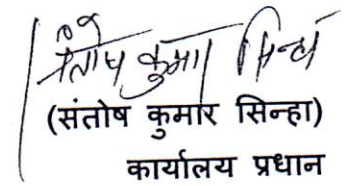 संतोष कुमार सिन्हा
(संतोष कुमार सिन्हा)
कार्यालय प्रधान